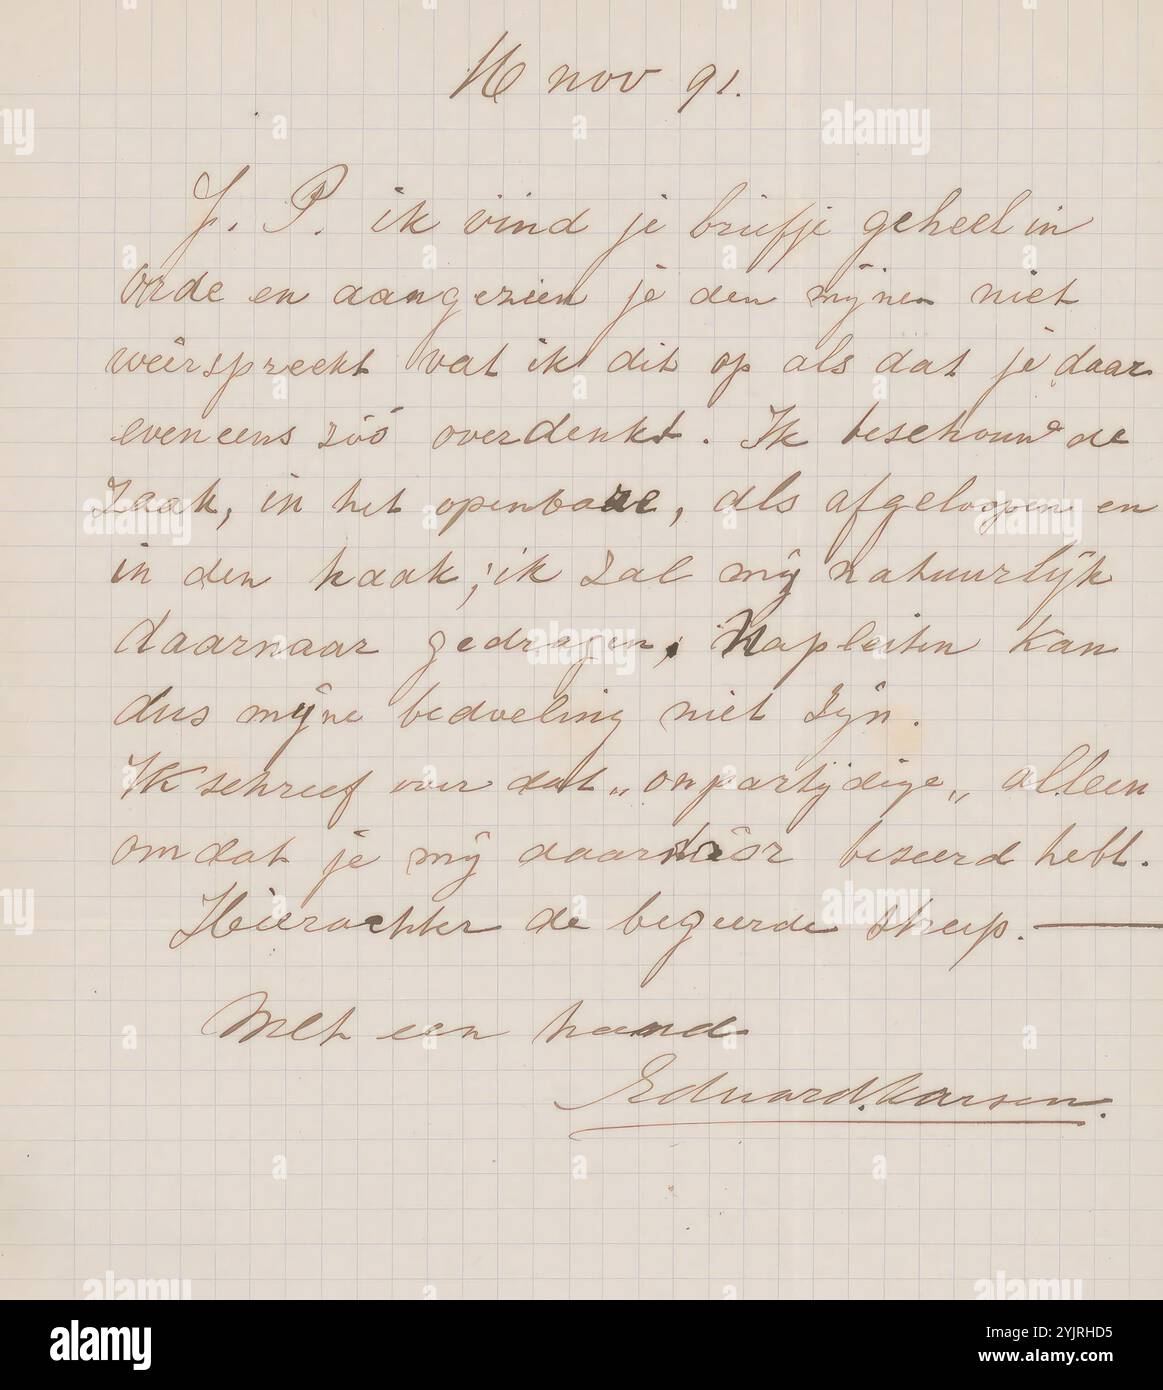 16 nov 91.
J. P. ik vind je briefje geheel in
orde en aangezien je den mijnen niet
weêrspreekt vat ik dit op als dat je daar
eveneens zóó overdenkt. Ik beschouw de
zaak, in het openbare, als afgeloopen en
in den haak; ik zal mij natuurlijk
daarnaar gedragen; Napleiten kan
dus mijne bedoeling niet zijn.
Ik schreef over dat „onpartijdige„ alleen
omdat je mij daarvóór beseerd hebt.
Hierachter de begeerde streep. —
Met een hand
Eduard. Karsen.
alamy
Image ID: 2YJRHD5
www.alamy.com